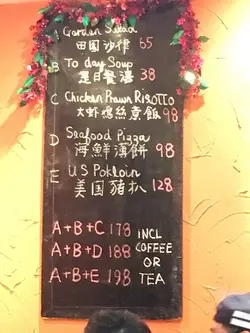 A Garden Salad
田園沙律 65
B To day Soup
是日餐湯 38
C Chicken Prawn Risotto
大虾鸡丝煮飯 98
D Seafood Pizza
海鮮薄餅 98
E US Pokloin
美国豬扒 128
A+B+C 178
A+B+D 188
A+B+E 198
INCL
COFFEE
OR
TEA